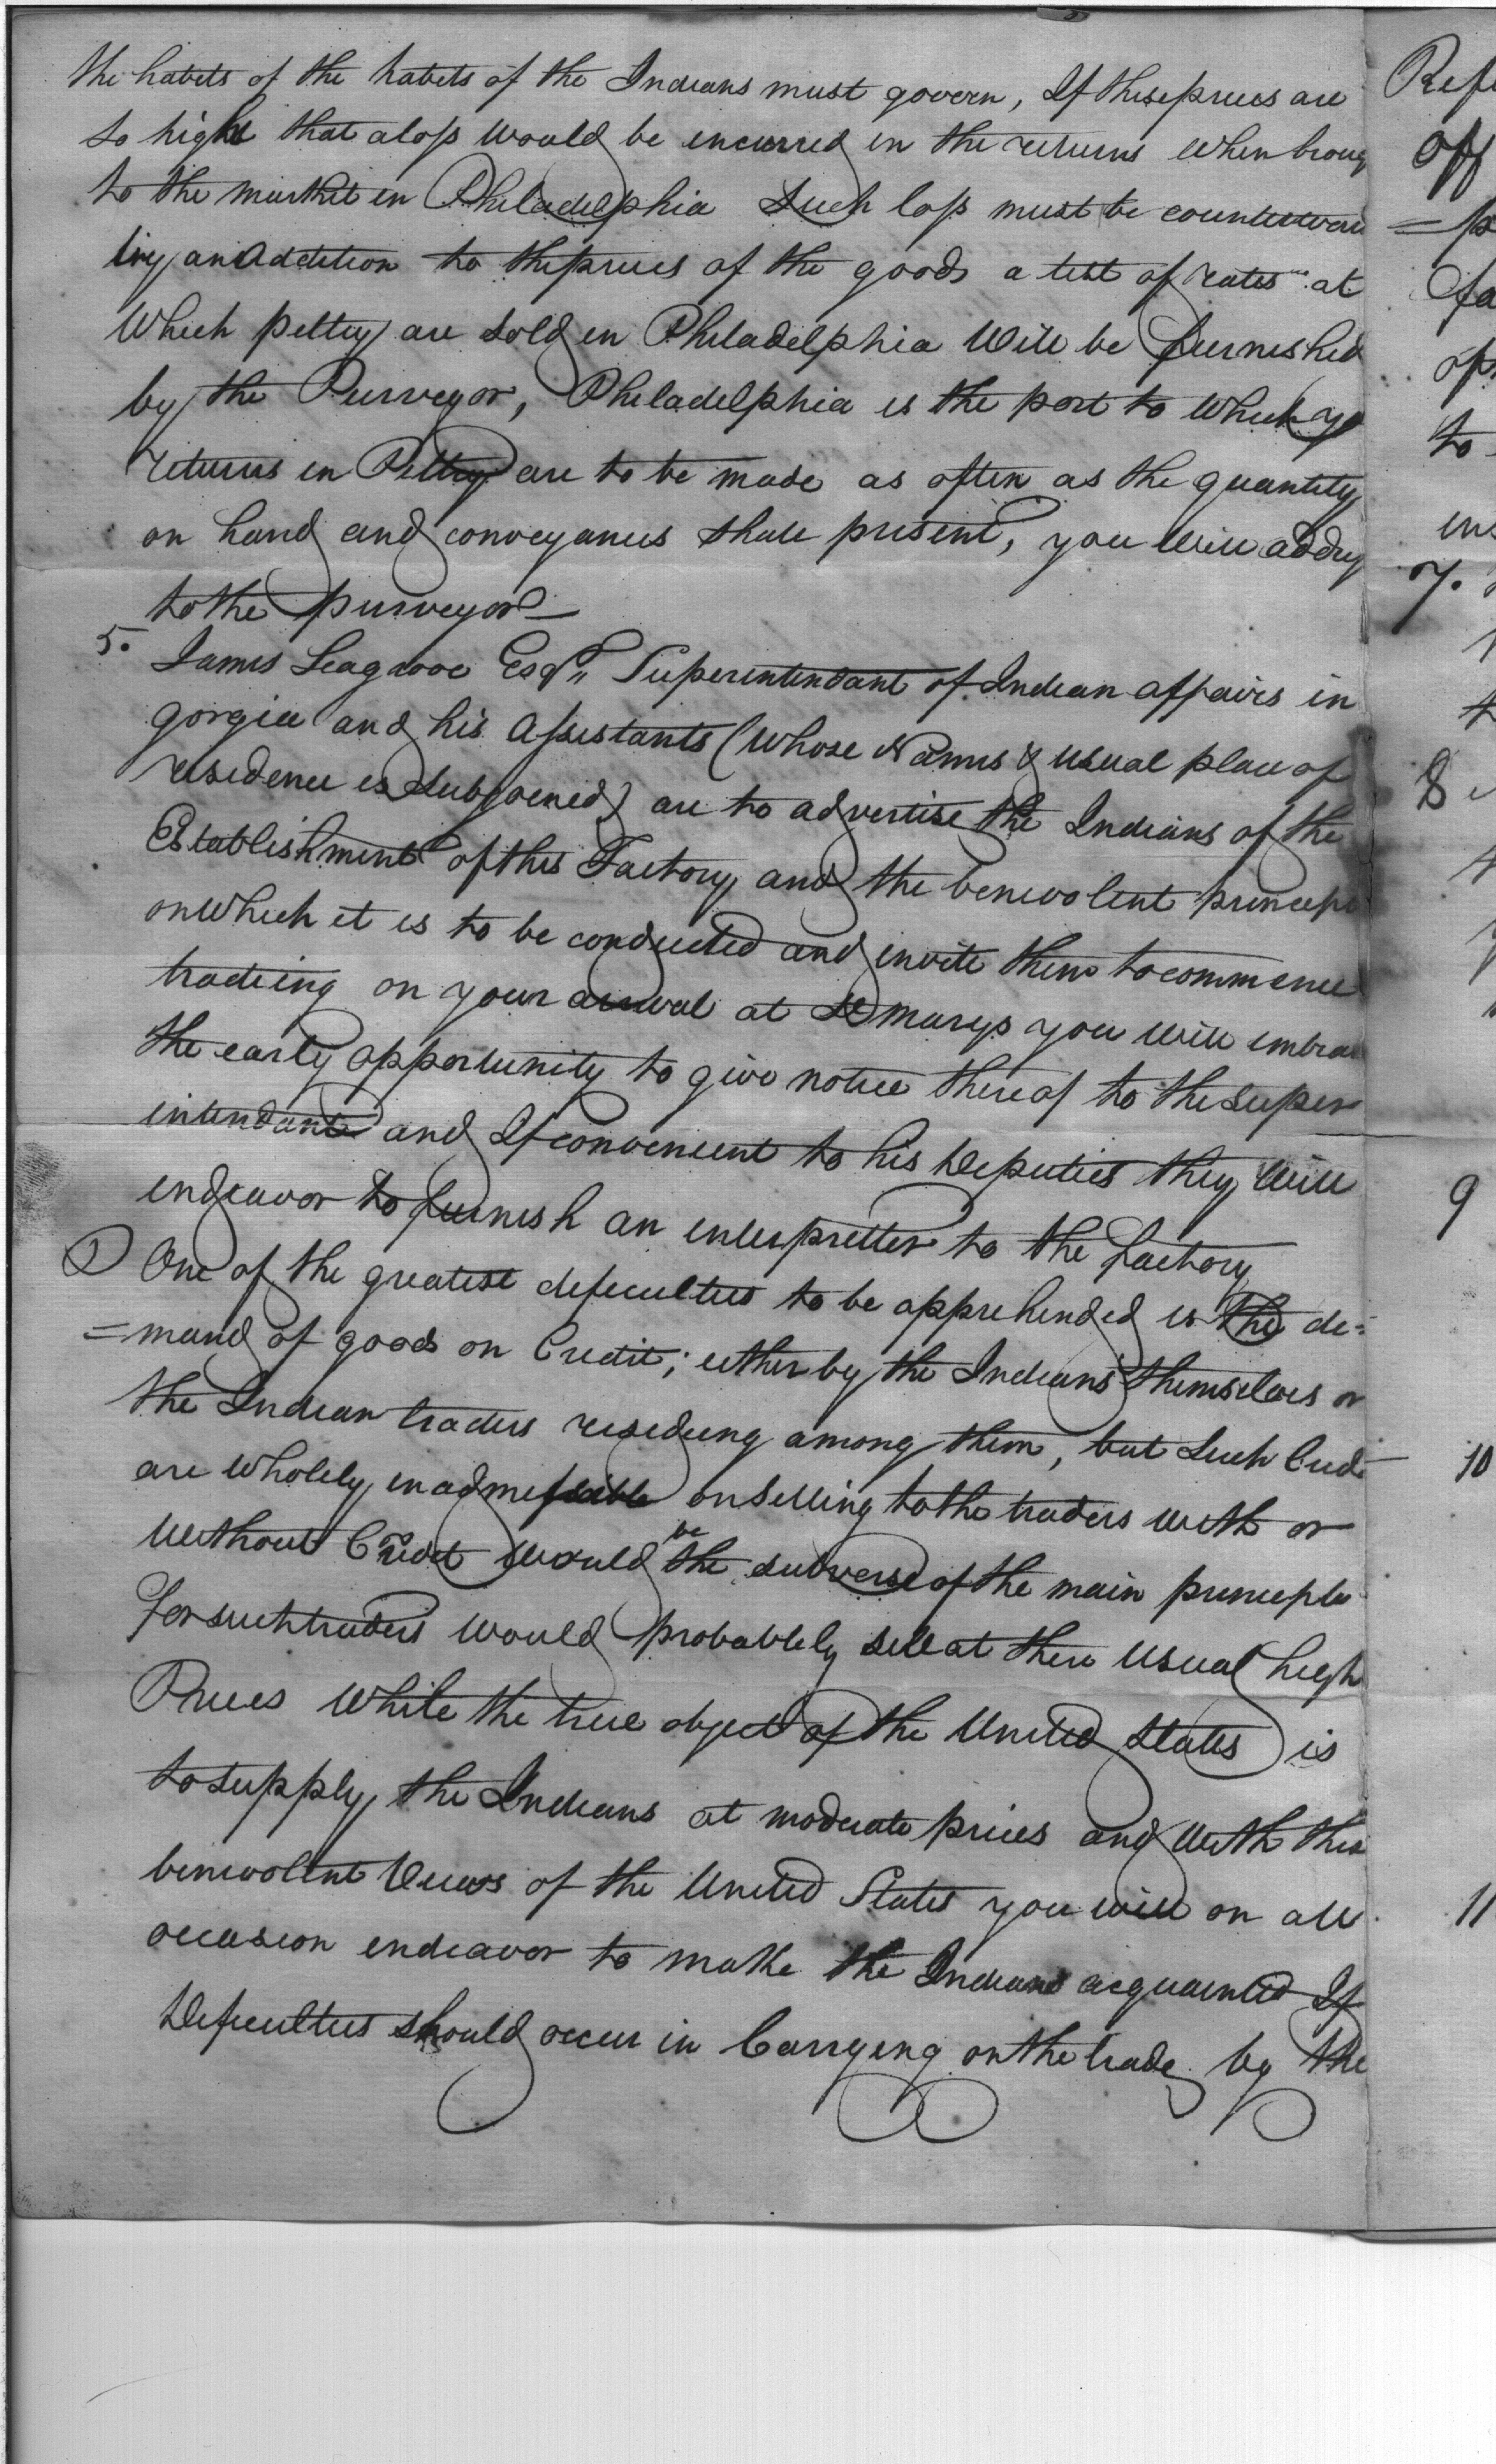 the habits of the habits of the Indians must govern, If these prices are
so high that a loss would be incurred in the returns when broug
to the market in Philadelphia Such loss must be
by an Addition to the prices of the goods a test of rates at
Which peltry are sold in Philadelphia Will be furnished
by the Purveyor, Philadelphia is the port to Which yr
returns in Peltry are to be made as often as the quantity
on hand and conveyances shall present, you Will
to the purveyor
5. James Seagrove Esqr. Superintendant of Indian affairs in
gorgia and his Assistants (Whose Names & usual place of
residence is Subjoined) are to advertise the Indians of the
Establishment of this Factory and the benevolent princip
on Which it is to be conducted and invite them to commence
tradeing on your arrival at St Marys you Will embrac
the early opportunity to give notice thereof to the super
intendant and If convenient to his Deputies they Will
endeavor to furnish an interpretter to the factory
One of the greatest deficulties to be apprehended is the de=
=mand of goods on Credit; either by the Indians themselves or
the Indian traders resideing among them, but Such Cred
are Wholely inadmissable on Selling to the traders with or
Without Credit Would be the subverse of the main principle
for such traders Would probablely sell at there Usual high
Prices While the true object of the United States is
to supply the Indians at moderate prices and With this
benevolent Views of the United States you will on all
occasion endeavor to make the Indians acquainted If
Deficulties should occur in Carrying on the trade by the
Refe
off
=p
fa
op
to
ins
7.
8
9
10
11